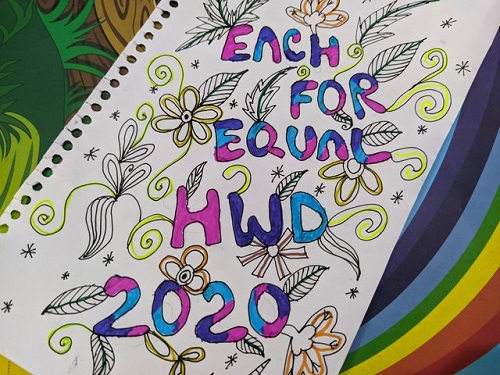 EACH
FOR
EQUAL
HWD
2020